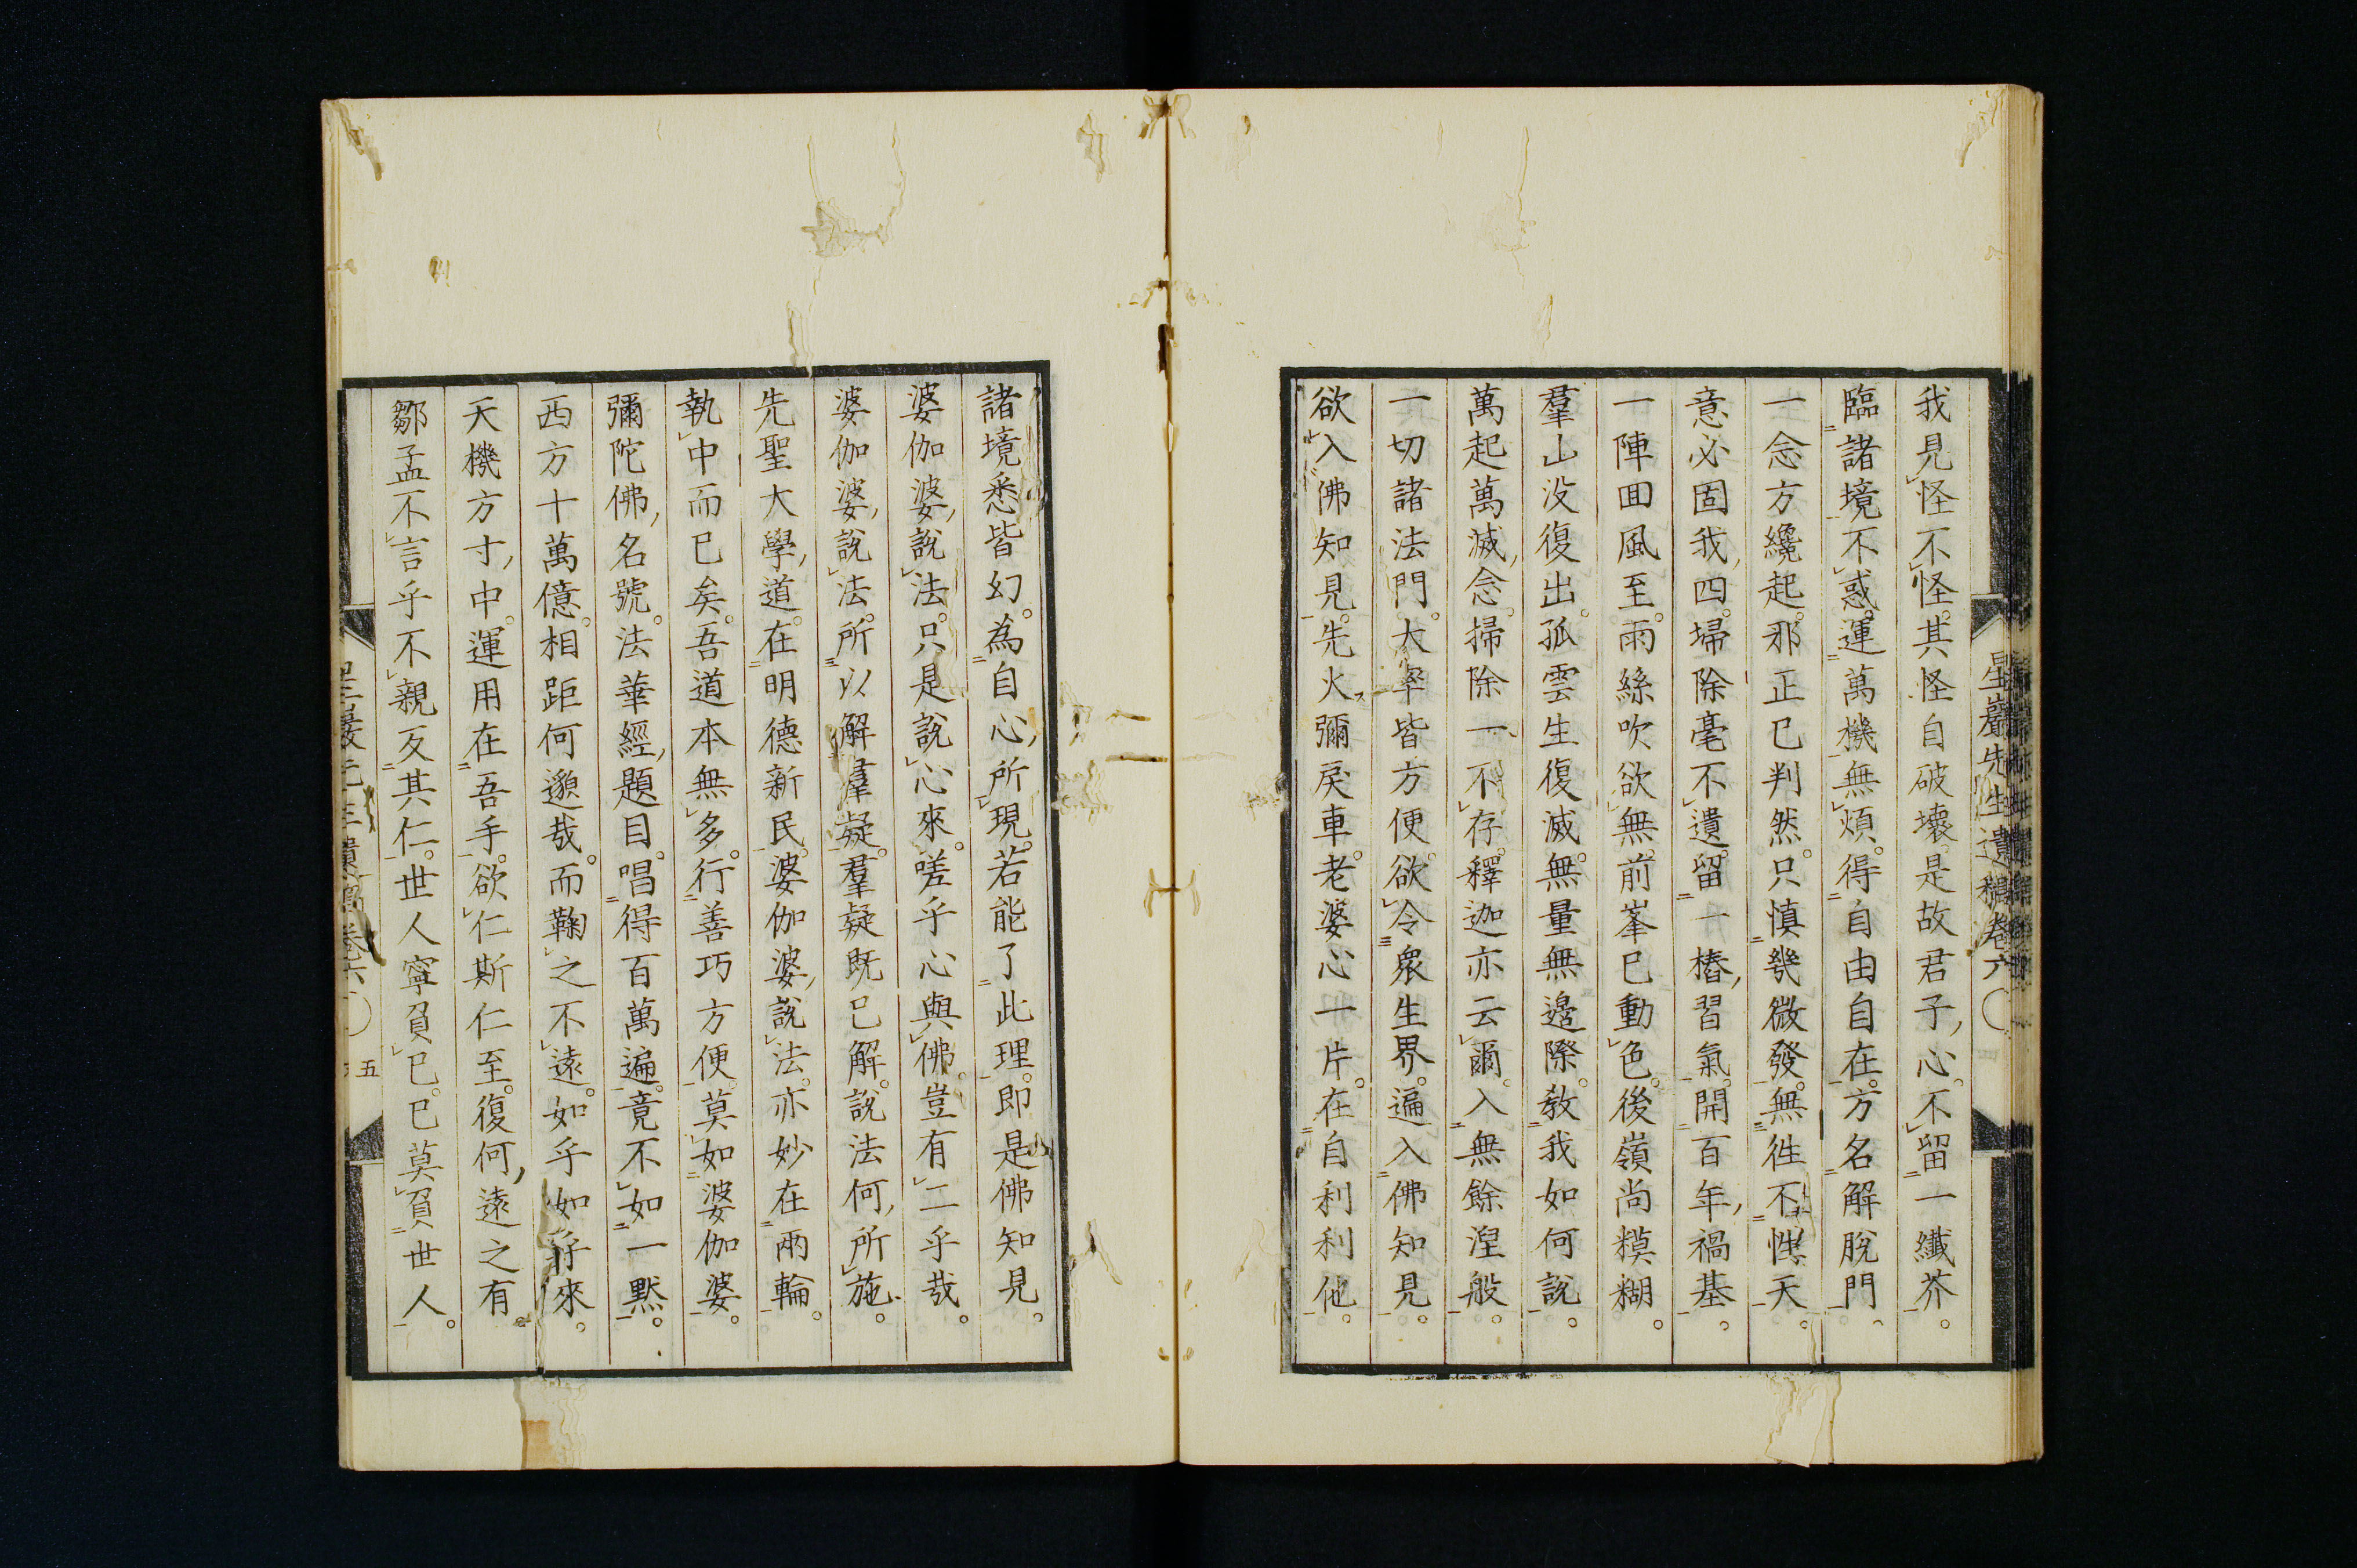 星巖先生遺稿卷六
我見怪不怪。其怪自破壞。是故君子心。不留一纖芥。
臨諸境不惑。運萬機無煩。得自由自在。方名解脫門。
一念方纔起。邪正已判然。只慎幾微發。無徃不性天。
意必固我四。埽除毫不遺。留一樁習氣。開百年禍基。
一陣回風至。雨絲吹欲無。前峯已動色。後嶺尚糢糊。
羣山没復出。孤雲生復滅。無量無邊際。教我如何說。
萬起萬滅念。掃除一不存。釋迦亦云爾。入無餘湼般。
一切諸法門。大率皆方便。欲令衆生界。遍入佛知見。
欲入佛知見。先火彌戾車。老婆心一片。在自利利他。
諸境悉皆幻。為自心所現。若能了此理。即是佛知見。
婆伽婆說法。只是說心來。嗟乎心與佛。豈有二乎哉。
婆伽婆說法。所以解羣疑。羣疑既已解。說法何所施。
先聖大學道。在明德新民。婆伽婆說法。亦妙在兩輪。
執中而已矣。吾道本無多。行善巧方便。莫如婆伽婆。
彌陀佛名號。法華經題目。唱得百萬遍。竟不如一默。
西方十萬億。相距何邈哉。而鞠之不遠。如乎如乎來。
天機方寸中。運用在吾手。欲仁斯仁至。復何遠之有。
鄒孟不言乎。不親反其仁。世人寧負已。已莫負世人。
五